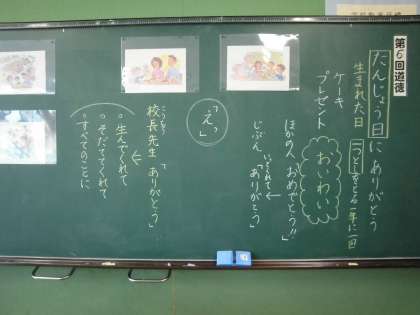 第6回道徳
たんじょう日にありがとう
生まれた日
一つとしをとる 一年に一回
ケーキ
プレゼント
おいわい
ほかの人「おめでとう!!」
じぶん「ありがとう」
いってくれて
「えっ」
こうちょう
校長先生「ありがとう」
・生んでくれて
・そだててくれて
・すべてのことに